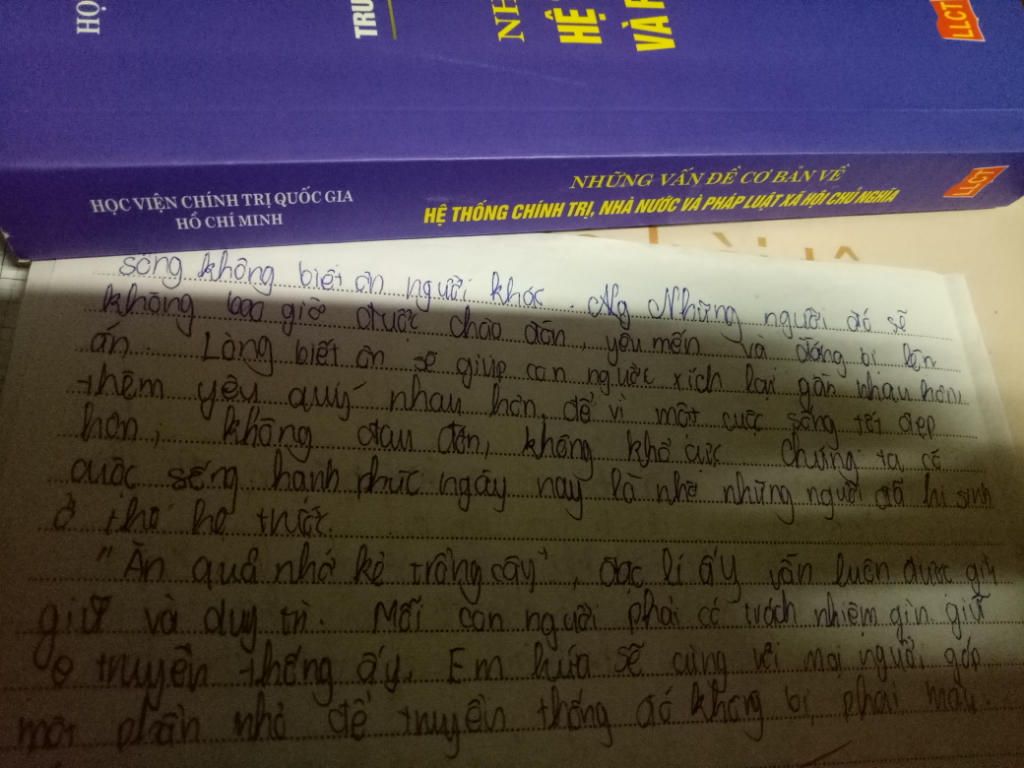 HỌ
TRU
NH
HỆ
VÀ P
LLCT
HỌC VIỆN CHÍNH TRỊ QUỐC GIA
HỒ CHÍ MINH
NHỮNG VẤN ĐỀ CƠ BẢN VỀ
HỆ THỐNG CHÍNH TRỊ, NHÀ NƯỚC VÀ PHÁP LUẬT XÃ HỘI CHỦ NGHĨA
LLCT
sống không biết ơn người khác. Ng Những người đó sẽ
không bao giờ được chào đón, yêu mến và đáng bị lên
án. Lòng biết ơn sẽ giúp con người xích lại gần nhau hơn,
thêm yêu quý nhau hơn, để vì một cuộc sống tốt đẹp
hơn, không đau đớn, không khổ cực chúng ta có
cuộc sống hạnh phúc ngày nay là nhờ những người đã hi sinh
ở thế hệ trước.
"Ăn quả nhớ kẻ trồng cây", đạc lí ấy vẫn luôn được gìn
giữ và duy trì. Mỗi con người phải có trách nhiệm gìn giữ
truyền thống ấy. Em hứa sẽ cùng với mọi người góp
một phần nhỏ để truyền thống đó không bị phai mầu.